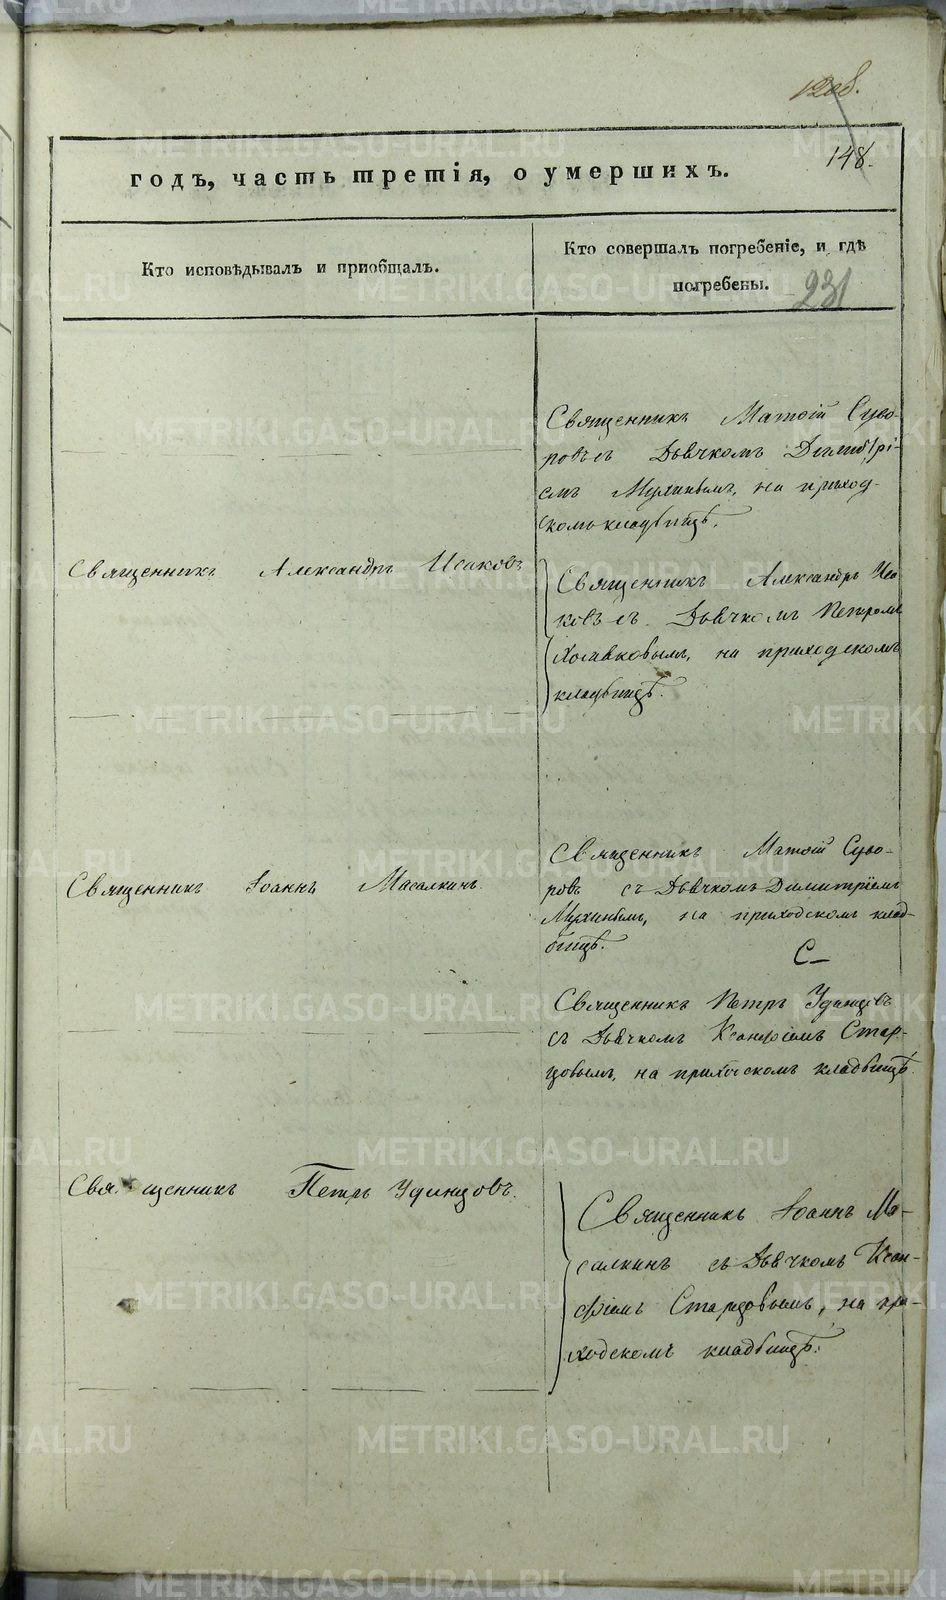 148.
годъ, часть третія, о умершихъ.
Кто исповѣдывалъ и пріобщалъ.
Кто совершалъ погребеніе, и гдѣ
погребены.
231
Священникъ Матѳій Суво-
ровъ съ Дьячкомъ Димитрі-
емъ Мухинымъ, на приход-
скомъ кладбищѣ.
Священникъ Александръ Исаковъ
Священникъ Александръ Иса
ковъ съ Дьячкомъ Петромъ
на приходскомъ
кладбищѣ.
Священникъ Іоаннъ Масалкинъ
Священникъ Матѳій Суво-
ровъ съ Дьячкомъ Димитріемъ
Мухинымъ, на приходскомъ клад-
бищѣ.
Священникъ Петръ Удинцовъ
съ Дьячкомъ Ксенофіемъ Стар-
цовымъ, на приходскомъ кладбищѣ.
Священникъ Петръ Удинцовъ.
Священникъ Іоаннъ Ма-
салкинъ съ Дьячкомъ Ксен-
офіемъ Старцовымъ, на при-
ходскомъ кладбищѣ.
METRIKI.GASO-URAL.RU